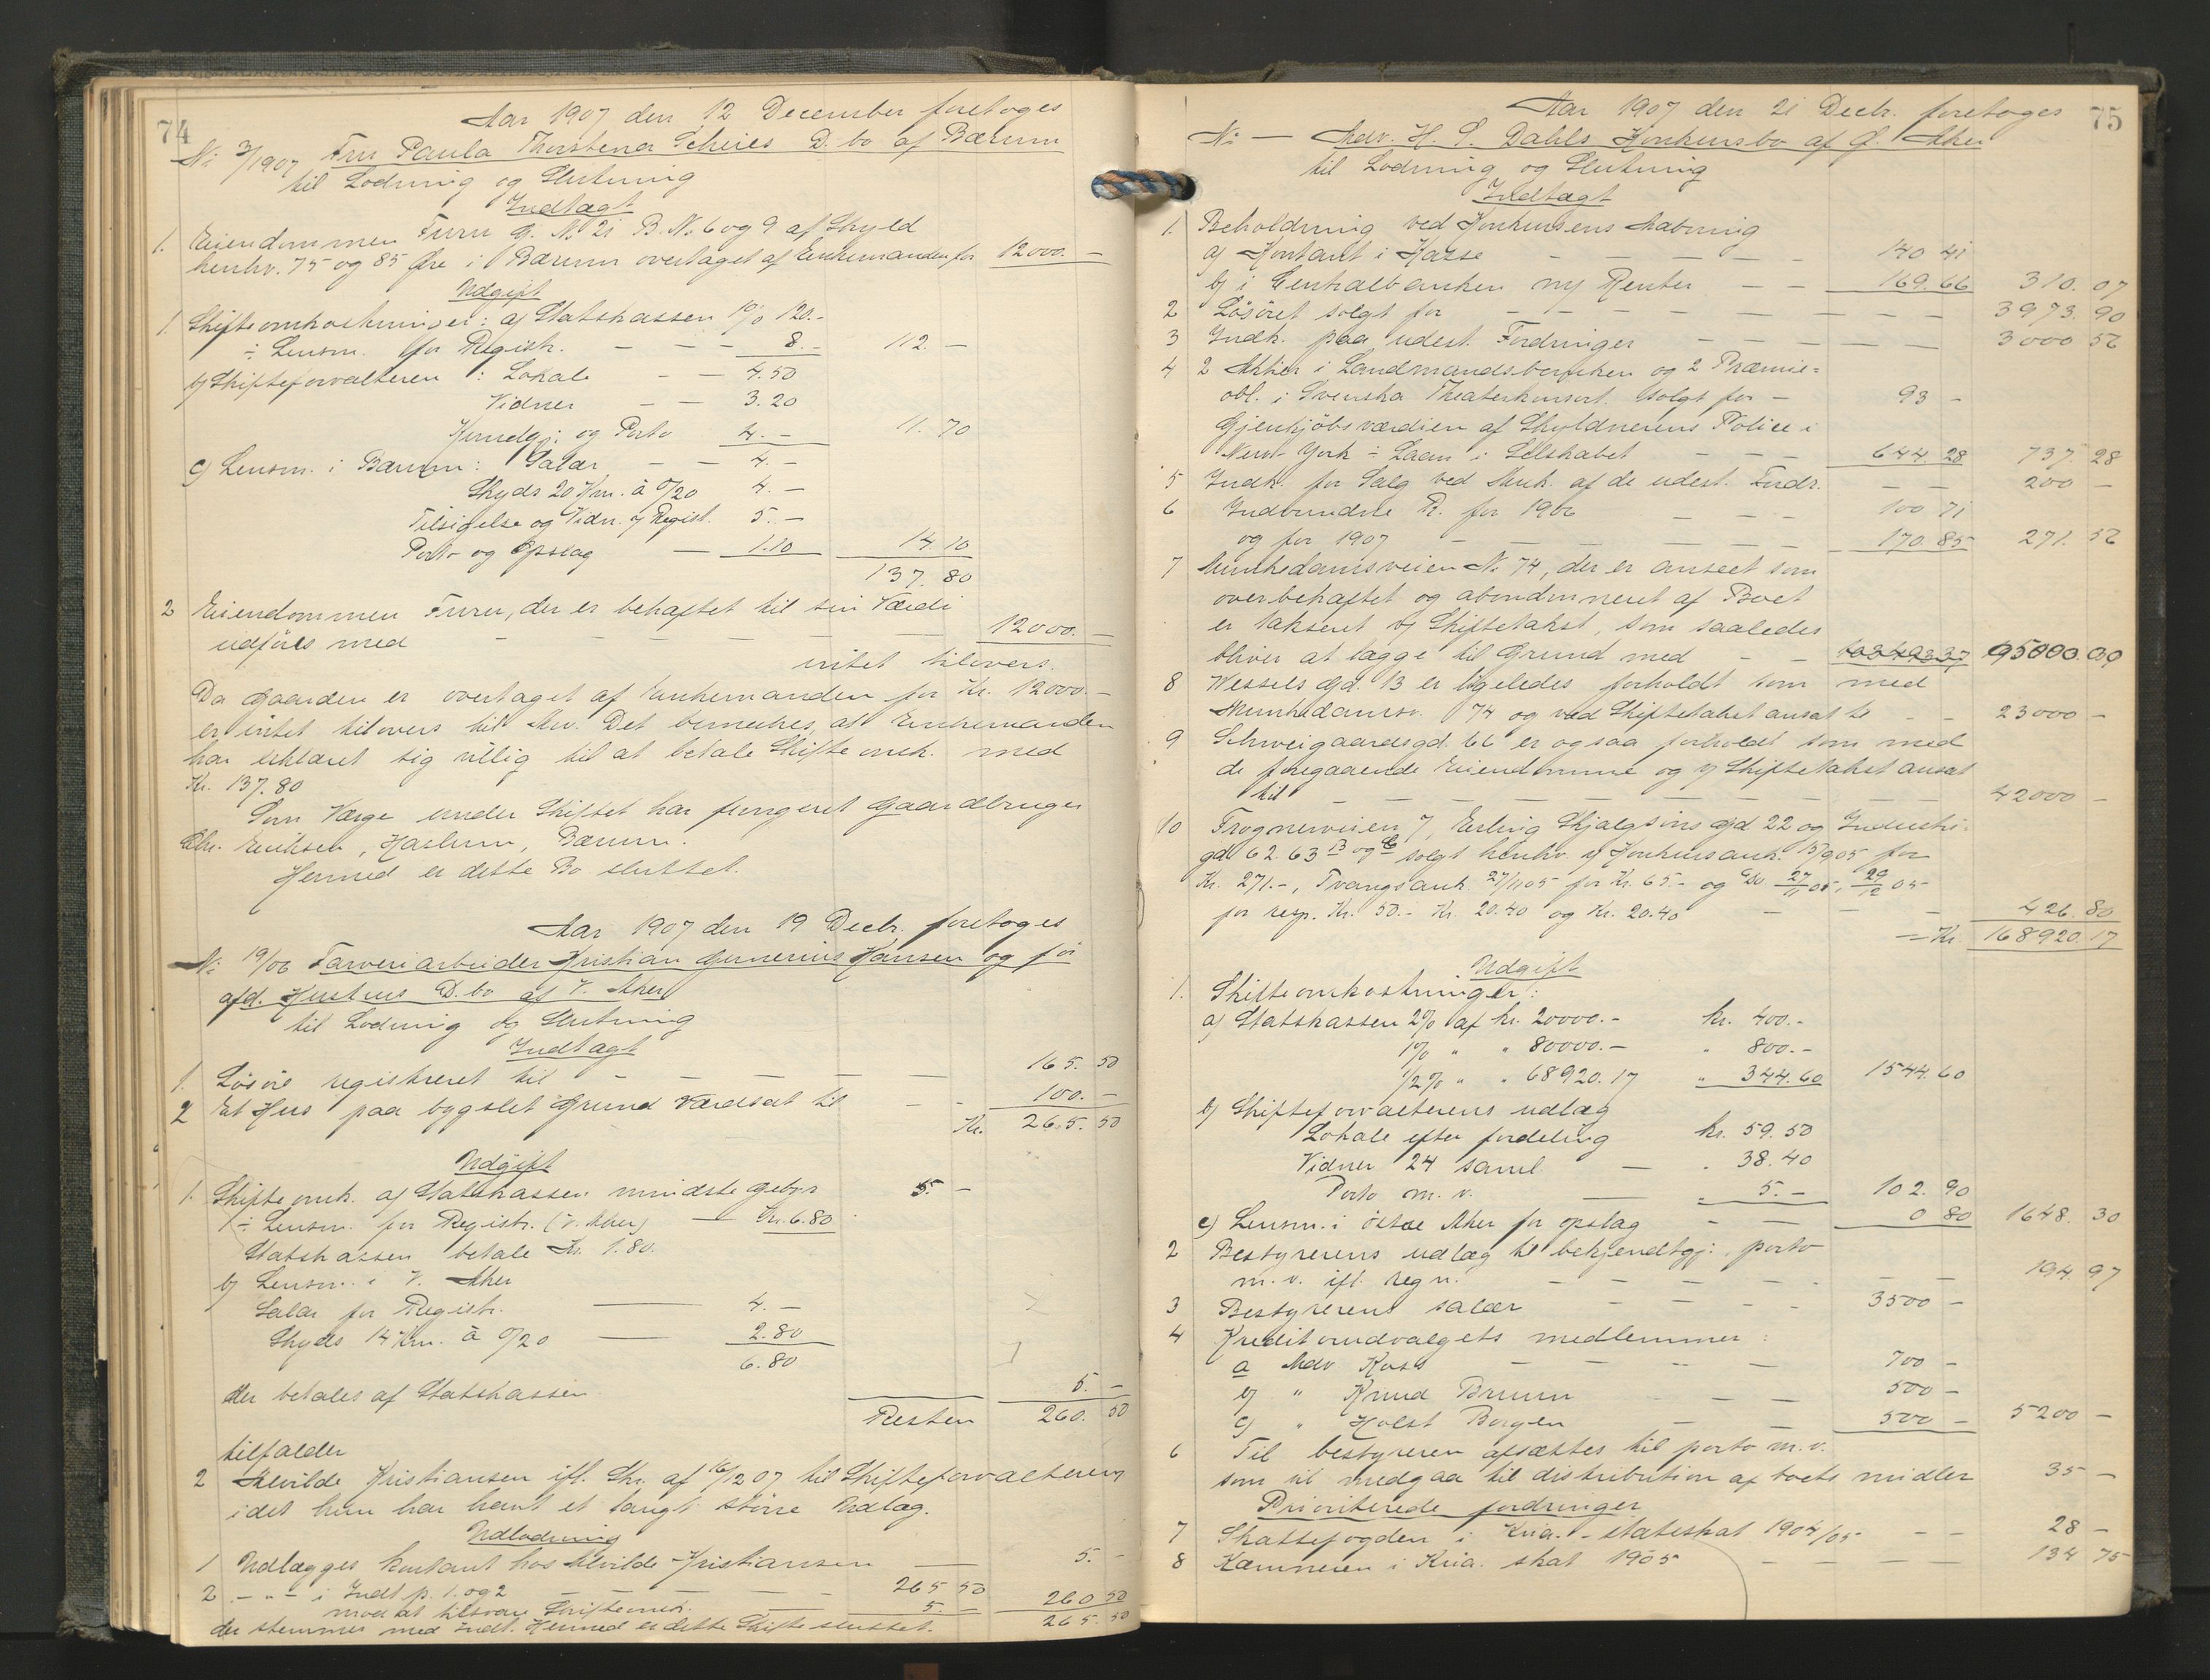 74
Aar 1907 den 12 December foretoges
No 3/1907 Fru Paula Thorstena Scheies D. bo af Bærum
til Lodning og Slutning
Indtægt
1. Eiendommen Furu G. No 21 B. No 6 og 9 af Skyld
henhv. 75 og 85 Øre i Bærum overtaget af Enkemanden for 12000. —
Udgift
1. Skifteomkostninger: a) Statskassen 1% 120.-
÷ Lensm. for Registr. — — — 8.- 112. —
b) Skifteforvalteren : Lokale — — 4.50
Vidner — — 3.20
Kundgj. og Porto 4.- 11. 70
c) Lensm. i Bærum: Salær — — 4.-
Skyds 20 Km. à 0/20 4.-
Tilsigelse og Vidn. v/ Regist. 5.-
Porto og Opslag — 1.10 14. 10
137. 80
2 Eiendommen Furu, der er behæftet til sin Værdi
udføres med — — — — — 12000. —
intet tilovers.
Da Gaarden er overtaget af Enkemanden for Kr. 12000.-
er intet tilovers til Arv. Det bemerkes, at Enkemanden
har erklæret sig villig til at betale Skifteomk. med
Kr. 137.80
Som Værge under Skiftet har fungeret Gaardbruger
Chr. Eriksen, Haslum, Bærum.
Hermed er dette Bo sluttet.
Aar 1907 den 19 Decbr. foretoges
No 19/06 Farveriarbeider Kristian Gunerius Hansen og før
afd. Hustrus D. bo af V. Aker
til Lodning og Slutning
Indtægt
1. Løsøre registreret til — — — — — 165. 50
2 Et Hus paa bygslet Grund Værdsat til — — 100. —
Kr. 265. 50
Udgift
1. Skifteomk. a) Statskassen mindste Gebyr 5. —
÷ Lensm. for Registr. (V. Aker) — Kr. 6.80
Statskassen betale Kr. 1.80.
b) Lensm. i V. Aker
Salær for Registr. — 4.-
Skyds 14 Km. à 0/20 — 2.80
6.80
der betales af Statskassen 5. —
Resten 260. 50
tilfalder
2 Alvilde Kristiansen ifl. Skr. af 16/12 07 til Skifteforvalteren
idet hun har havt et langt større Udlæg.
Udlodning
1 Udlægges kontant hos Alvilde Kristiansen — 5. —
2 — " — i Indt p. 1. og 2 — — — 265 50
mod at tilsvare Skifteomk. — 5. — 260 50
der stemmer med Indt. Hermed er dette Skifte sluttet. 265. 50
75
Aar 1907 den 21 Decbr. foretoges
No — Adv. H. S. Dahls Konkursbo af Ø. Aker
til Lodning og Slutning
Indtægt
1. Beholdning ved Konkursens Aabning
a) Kontant i Kasse — — — — — 140 41
b) i Centralbanken m/ Renter — — 169. 66 310. 07
2 Løsøret solgt for — — — — — — — — 3973. 90
3 Indk. paa udest. Fordringer — — — — — 3000 52
4 2 Aktier i Landmandsbanken og 2 Præmie=
obl. i Svenska Theaterkonsort. solgt for — 93 —
Gjenkjöbsværdien af Skyldnerens Police i
New-York ÷ Laan i Selskabet — — — 644. 28 737. 28
5 Indk. for Salg ved Auk. af de udest. Fordr. — — 200 —
6 Indvundne R. for 1906 — — — 100 71
og for 1907 — — — — — — 170. 85 271. 56
7 Munkedamsveien No 74, der er anseet som
overbehæftet og abandonneret af Boet
er takseret v/ Skiftetakst, som saaledes
bliver at lægge til Grund med — — 95000. 00
8 Wessels Gd. 13 er ligeledes forholdt som med
Munkedamsv. 74 og ved Skiftetakst ansat til — — 23000 —
9 Schweigaardsgd. 66 er ogsaa forholdt som med
de foregaaende Eiendomme og v/ Skiftetakst ansat
til — — — — — — — — 42000 —
10 Frognerveien 7, Erling Skjalgsøns Gd 22 og Industri-
gd 62. 63 13 og 16 solgt henhv. v/ Konkursauk. 15/9 05 for
Kr. 271.-, Tvangsauk. 27/11 05 for Kr. 65.- og Do. 27/11 05, 29/12 05
for resp. Kr. 50.- Kr. 20.40 og Kr. 20.40 — — — 426. 80
= Kr. 168920. 17
Udgift
1. Skifteomkostninger:
a) Statskassen 2% af kr. 20000.- kr. 400.-
1% " " 80000.- " 800.-
1/2% " " 68920.17 " 344.60 1544. 60
b) Skifteforvalterens udlæg
Lokale efter fordeling kr. 59.50
Vidner 24 saml. — " 38.40
Porto m. v. — " 5.- 102. 90
c) Lensm. i östre Aker for opslag — — 0 80 1648. 30
2 Bestyrerens udlæg til bekjendtgj., porto
m. v. ifl. regn. — — — — — — 194. 97
3 Bestyrerens salær — — — — 3500 —
4 Kreditorudvalgets medlemmer:
a Adv Koss — — — — 700 —
b) " Knud Bruun — — 500 —
c) " Holst Bergen — — 500 — 5200 —
6 Til bestyreren afsættes til porto m. v.
som vil medgaa til distribution af boets midler 35 —
Prioriterede fordringer
7 Skattefogden i Kria. - statsskat 1904/05 — — 28 —
8 Kæmneren i Kria. skat 1905 — — — 134 75